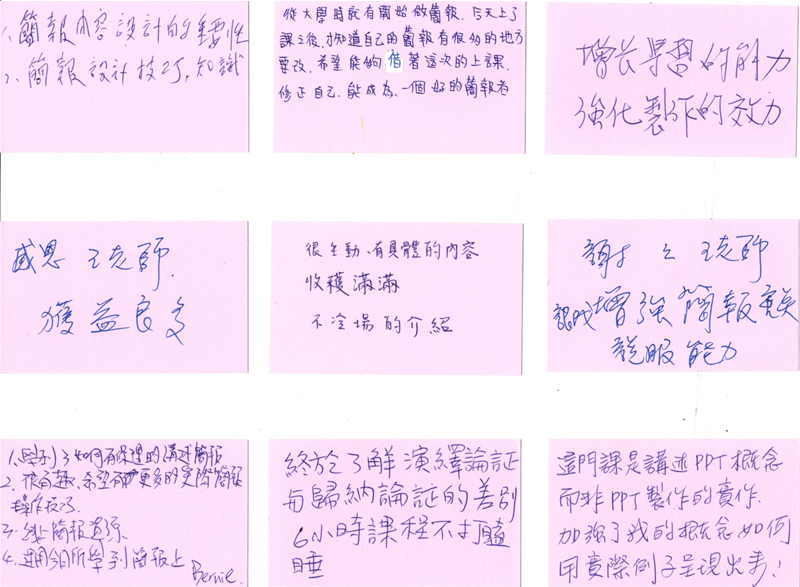 1、簡報內容設計的重要性
2、簡報設計技巧,知識
從大學時就有開始做簡報,今天上了
課之後,才知道自己的簡報有很多的地方
要改,希望能夠借著這次的上課,
修正自己,能成為一個好的簡報者
增長學習的能力
強化製作的效力
感恩 王老師.
獲益良多
很生動、有具體的內容
收穫滿滿
不冷場的介紹
謝謝王老師
讓我增強簡報
說服能力
1、學到了如何有條理的講述簡報
2、很有趣,希望有更多的實際簡報
操作技巧
3.簡報資源
4.運用今日所學到簡報上
Bernie.
終於了解演繹論証
与歸納論証的差別
6小時課程不打瞌
睡
這門課是講述PPT概念
而非PPT製作的實作.
加強了我的概念如何
用實際例子呈現出來!